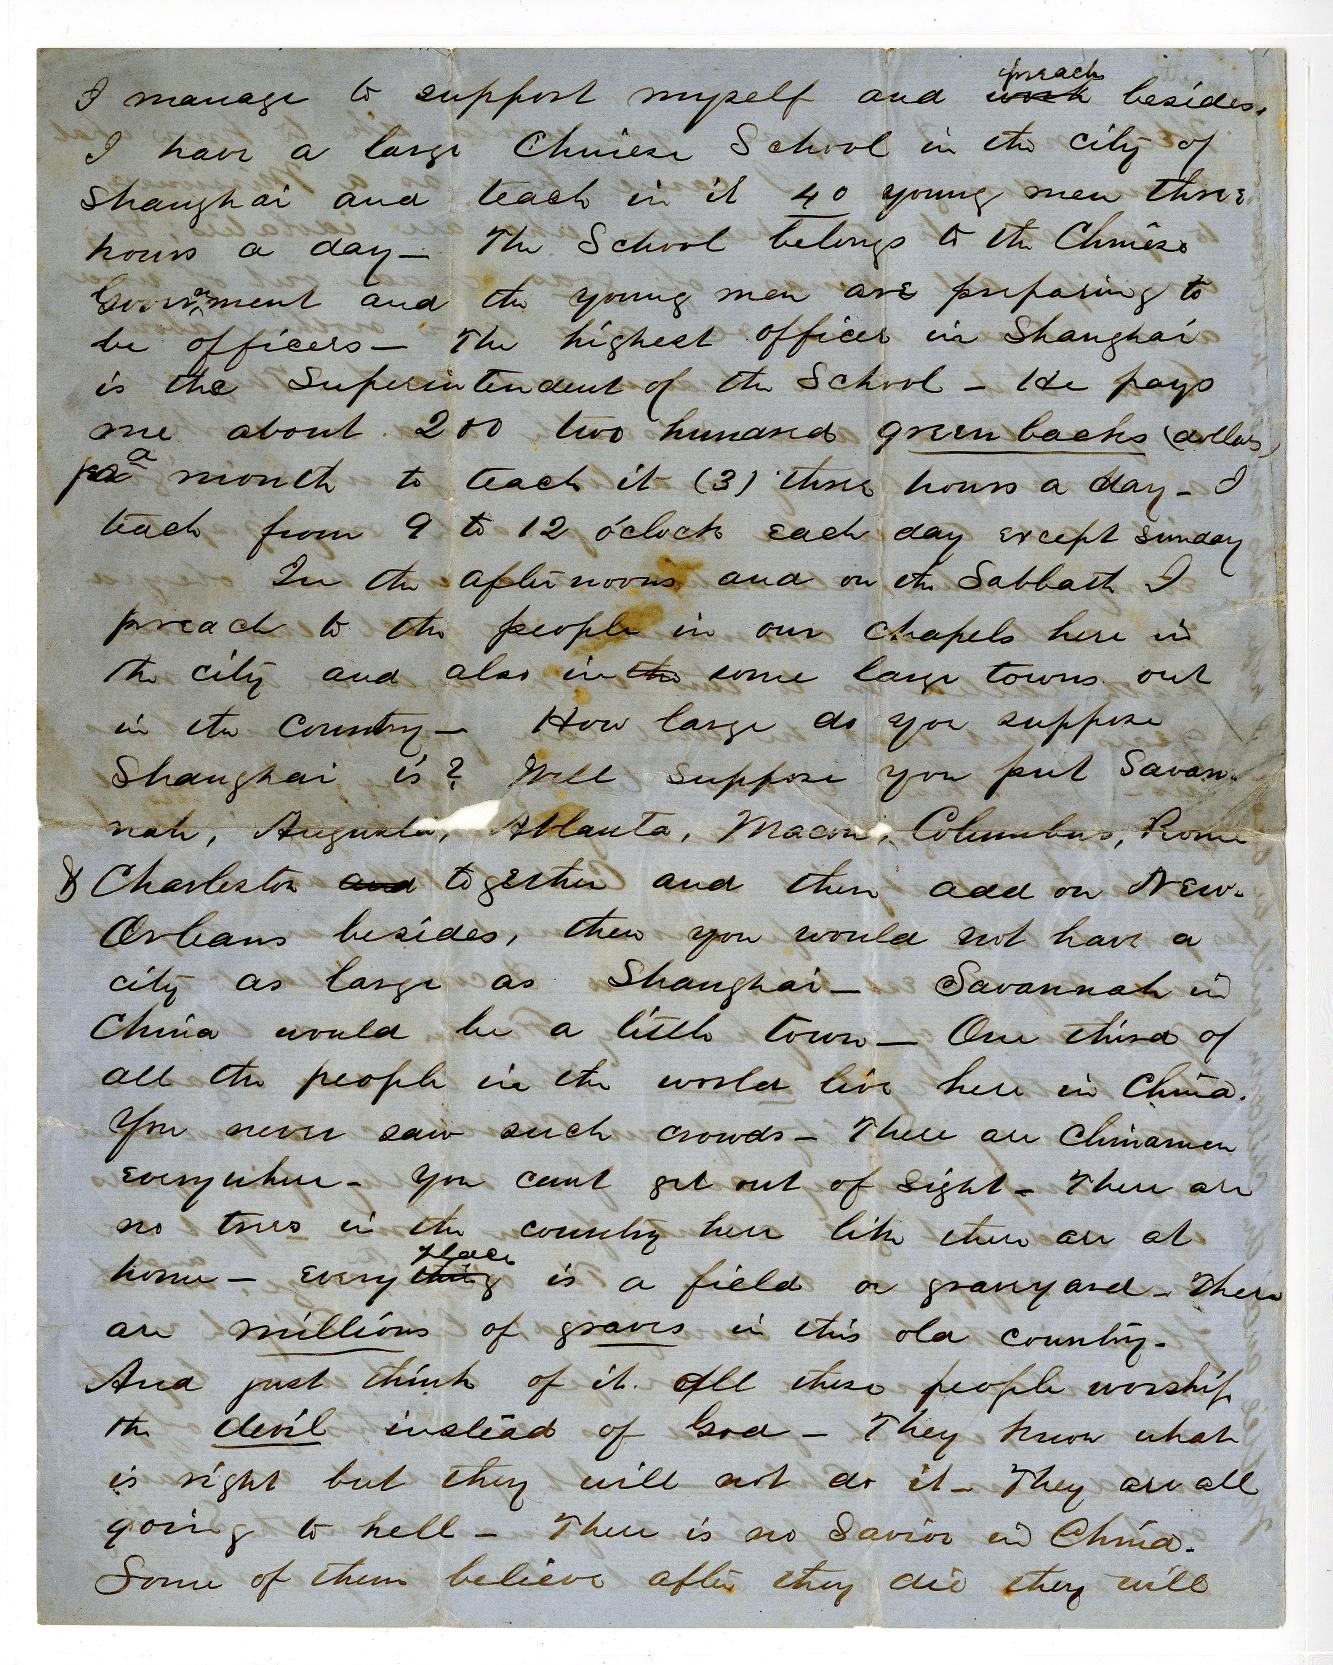 I manage to support myself and work preach besides.
I have a large Chinese School in the city of
Shanghai and teach in it 40 young men three
hours a day — The School belongs to the Chinese
Government and the young men are preparing to
be officers — The highest officer in Shanghai
is the Superintendent of the School — He pays
me about 200 two hundred greenbacks (dollars)
per a month to teach it (3) three hours a day — I
teach from 9 to 12 o'clock each day except Sunday
In the afternoons and on the Sabbath I
preach to the people in our chapels here in
the city and also in the some large towns out
in the country — How large do you suppose
Shanghai is? Well suppose you put Savan-
nah, Augusta, Atlanta, Macon, Columbus, Rome
& Charleston and together and then add on New-
Orleans besides, then you would not have a
city as large as Shanghai — Savannah in
China would be a little town — One third of
all the people in the world live here in China.
You never saw such crowds — There are Chinamen
everywhere — You cant get out of sight — There are
no trees in the country here like there are at
home — every thing place is a field or graveyard — There
are millions of graves in this old country —
And just think of it. All these people worship
the devil instead of God — They know what
is right but they will not do it — They are all
going to hell — There is no Savior in China —
Some of them believe after they die they will